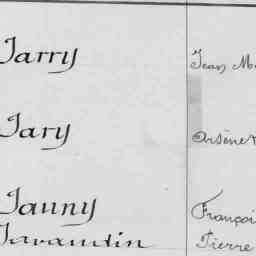 Jarry Jean M
Jary Arsène
Jauny Françoi
Javaudin Pierre